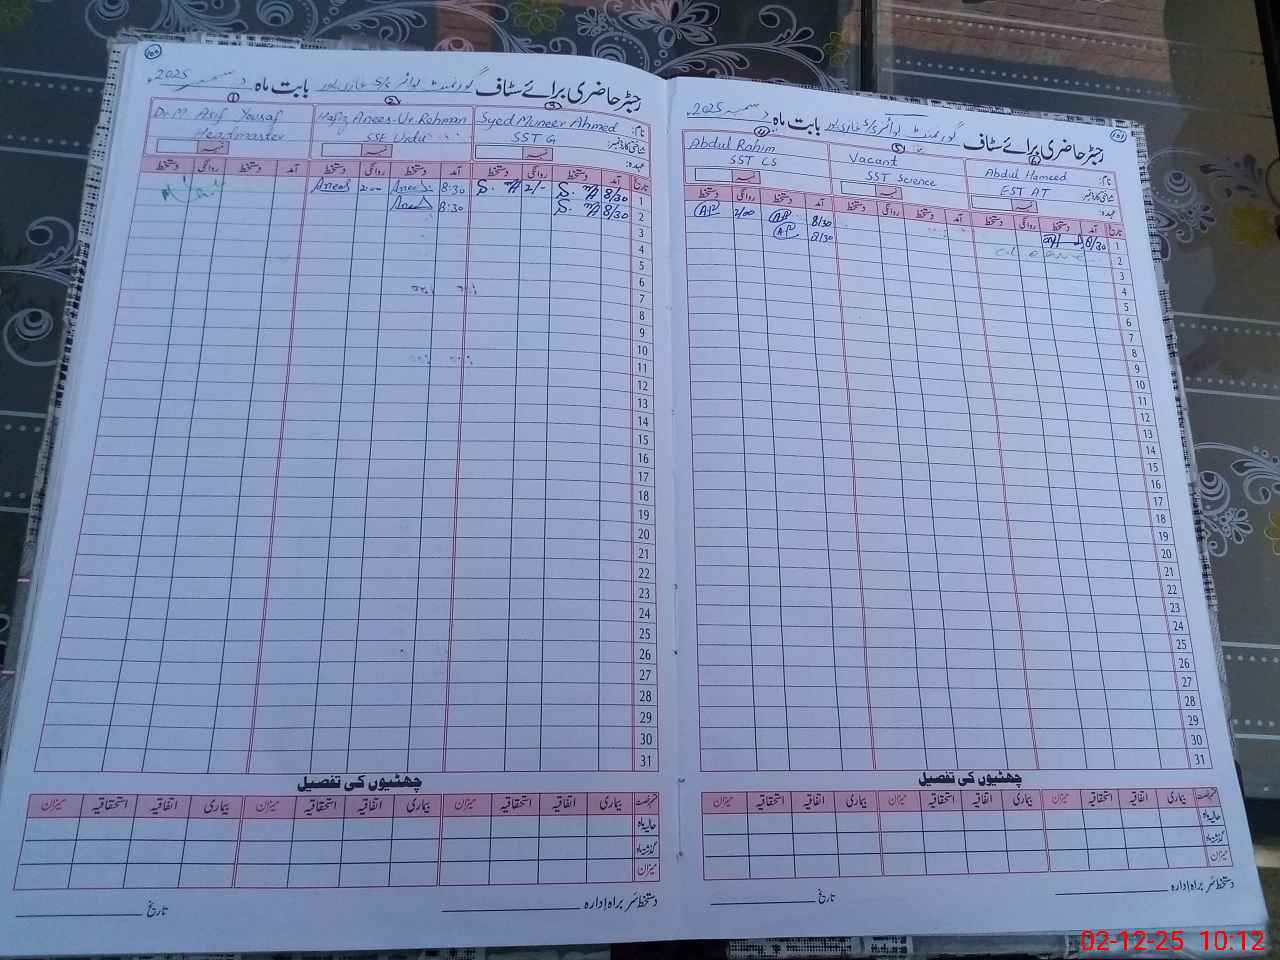 رجسٹر حاضری برائے سٹاف گورنمنٹ بوائز S/ غازی پور بابت ماہ دسمبر 2025ء
③ ② ①
نام: Syed Muneer Ahmed Hafiz Anees-Ur-Rehman Dr. M. Asif Yousaf
شناختی کارڈ نمبر: SST G SSE Urdu Headmaster
عہدہ: نمبر نمبر نمبر
تاریخ آمد دستخط روانگی دستخط آمد دستخط روانگی دستخط آمد دستخط روانگی دستخط
1 8/30 S. M 2/- S. M 8:30 Anees 2:00 Anees
2 8/30 S. M 8:30 Anees
3
4
5
6
7
8
9
10
11
12
13
14
15
16
17
18
19
20
21
22
23
24
25
26
27
28
29
30
31
چھٹیوں کی تفصیل
قسم رخصت بیماری اتفاقیہ استحقاقیہ میزان بیماری اتفاقیہ استحقاقیہ میزان بیماری اتفاقیہ استحقاقیہ میزان
حالیہ ماہ
گذشتہ ماہ
میزان
دستخط سر براہ ادارہ تاریخ
101
رجسٹر حاضری برائے سٹاف گورنمنٹ بوائز S/ غازی پور بابت ماہ دسمبر 2025ء
⑥ ⑤ ④
نام: Abdul Hameed Vacant Abdul Rahim
شناختی کارڈ نمبر: EST AT SST Science SST CS
عہدہ: نمبر نمبر نمبر
تاریخ آمد دستخط روانگی دستخط آمد دستخط روانگی دستخط آمد دستخط روانگی دستخط
1 8/30 8/30 AR 2/00 AR
2 leave 8/30 AR
3
4
5
6
7
8
9
10
11
12
13
14
15
16
17
18
19
20
21
22
23
24
25
26
27
28
29
30
31
چھٹیوں کی تفصیل
قسم رخصت بیماری اتفاقیہ استحقاقیہ میزان بیماری اتفاقیہ استحقاقیہ میزان بیماری اتفاقیہ استحقاقیہ میزان
حالیہ ماہ
گذشتہ ماہ
میزان
دستخط سر براہ ادارہ تاریخ
02-12-25 10:12